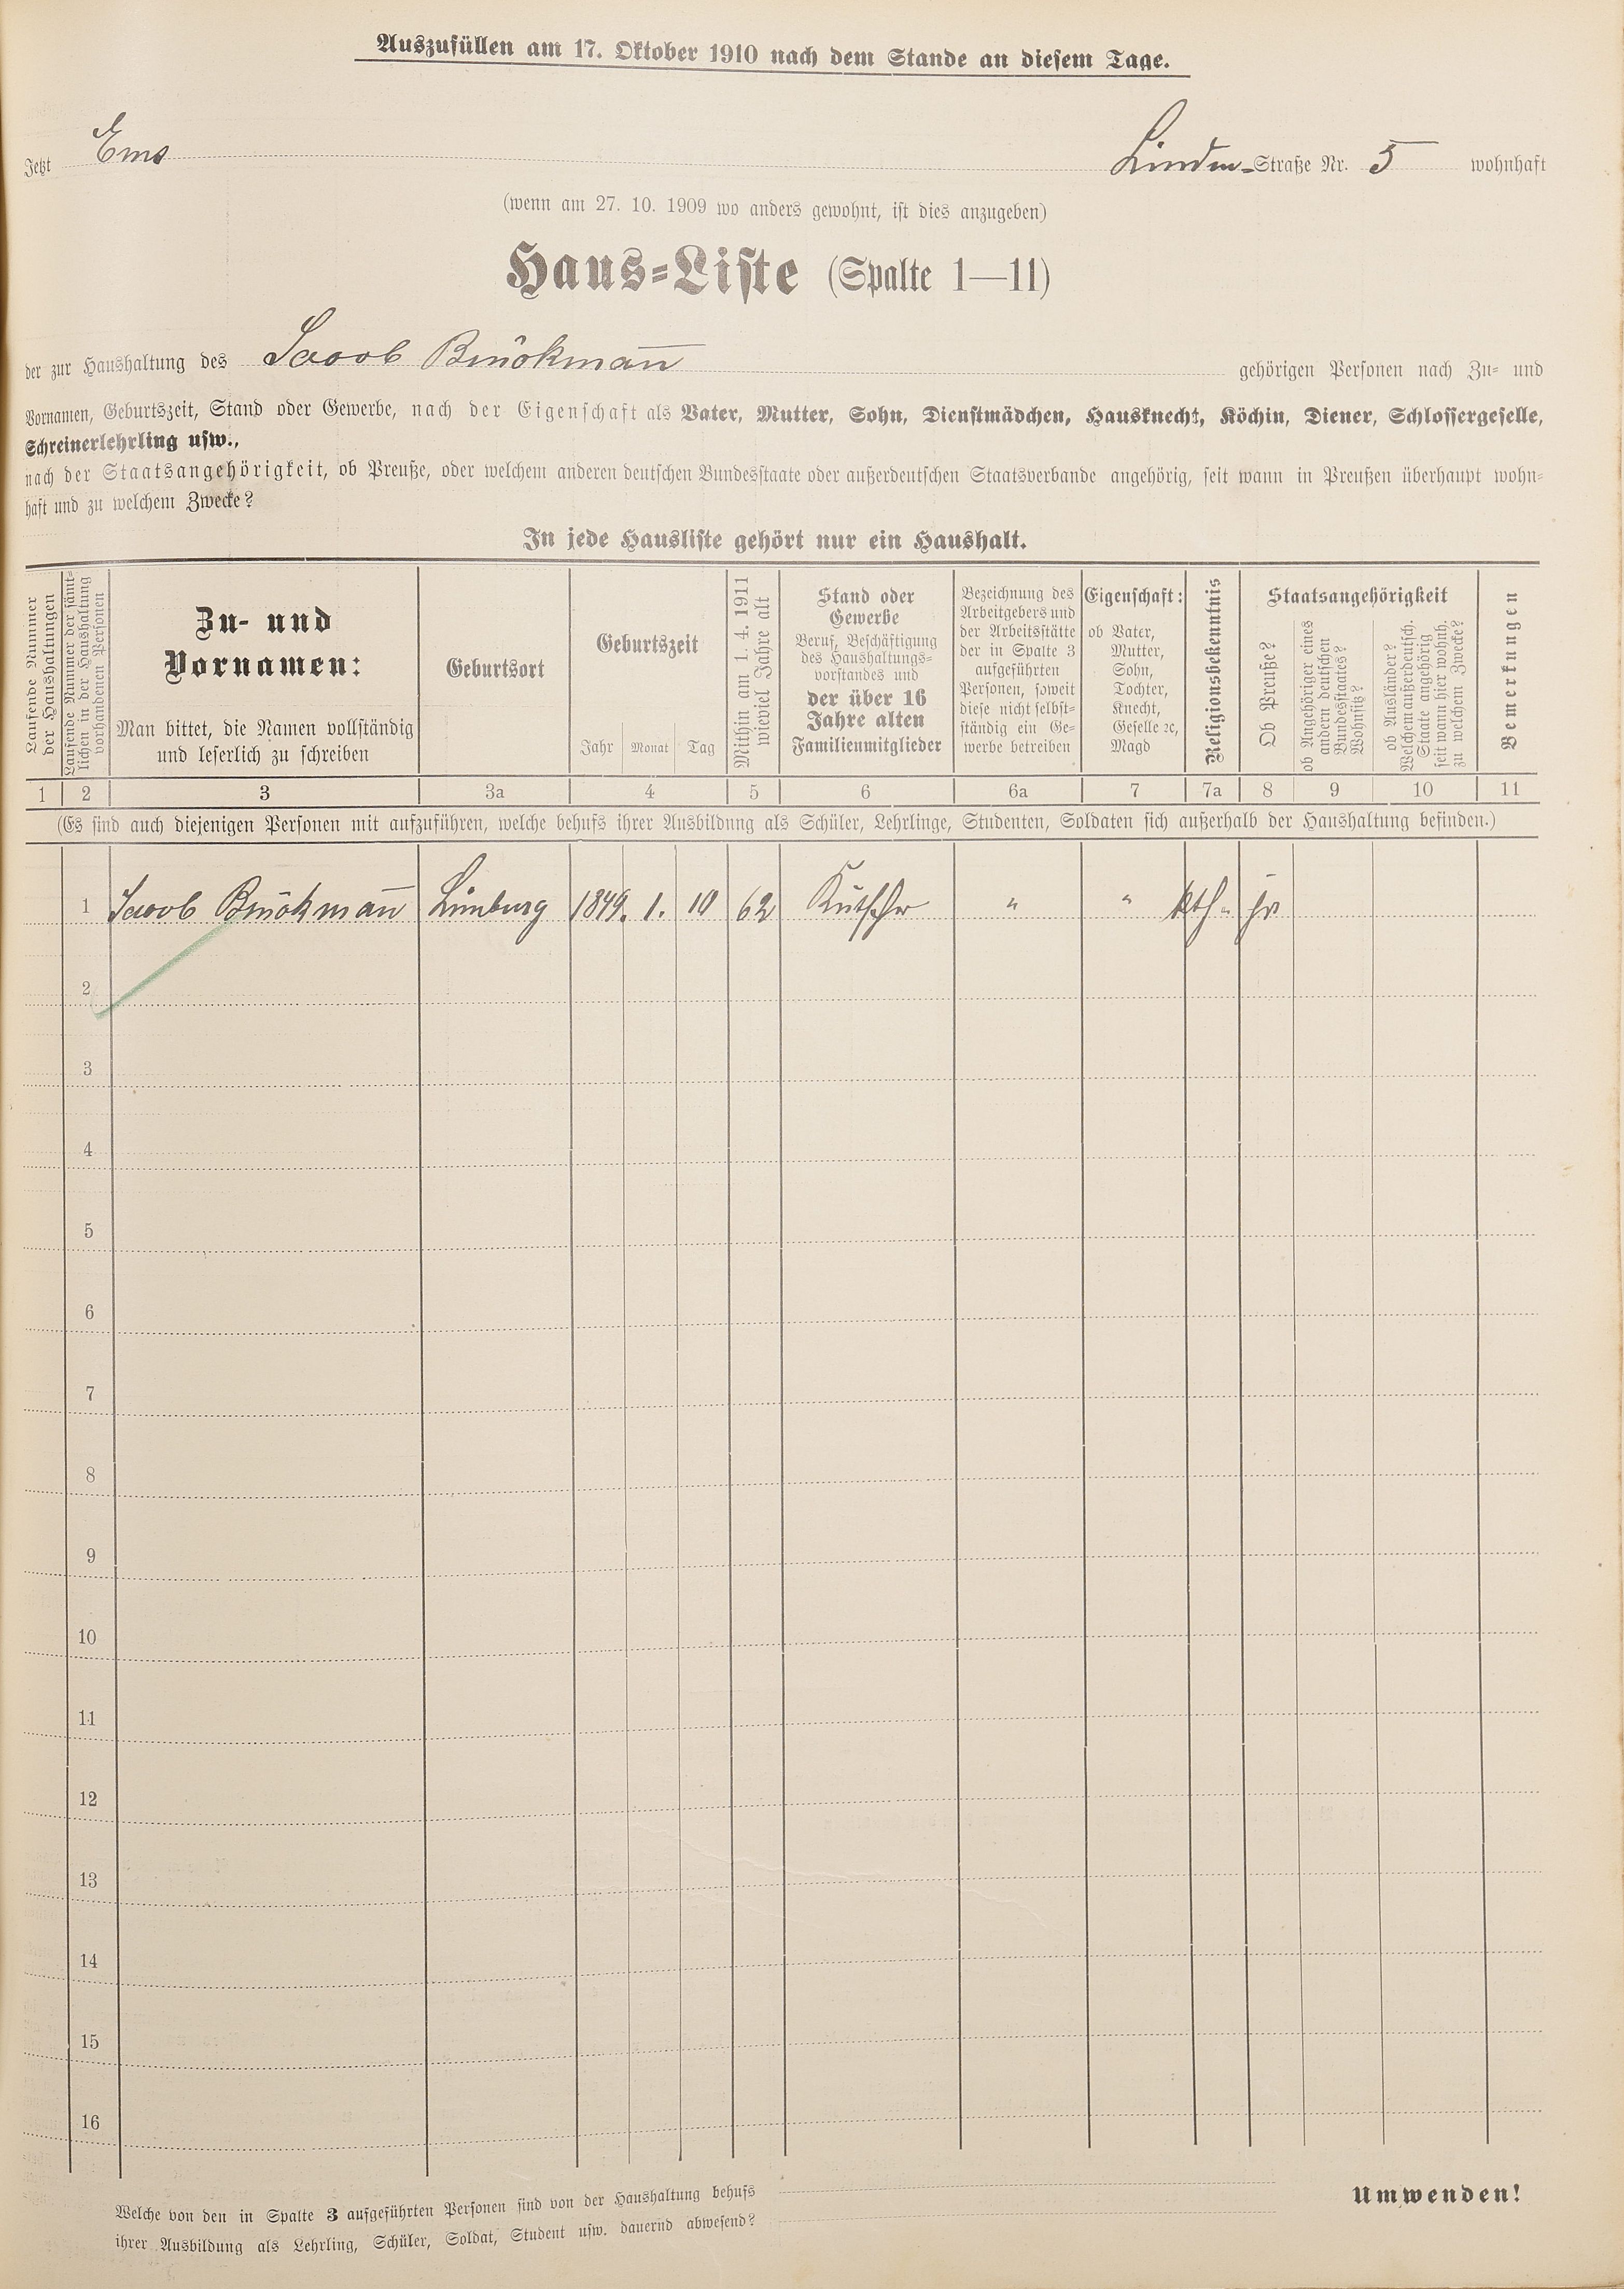 Auszufüllen am 17. Oktober 1910 nach dem Stande an diesem Tage.
Jetzt Ems Linden-Straße Nr. 5 wohnhaft
(wenn am 27. 10. 1909 wo anders gewohnt, ist dies anzugeben)
Haus-Liste (Spalte 1—11)
der zur Haushaltung des Jacob Brückmann gehörigen Personen nach Zu- und
Vornamen, Geburtszeit, Stand oder Gewerbe, nach der Eigenschaft als Vater, Mutter, Sohn, Dienstmädchen, Hausknecht, Köchin, Diener, Schlossergeselle,
Schreinerlehrling usw.,
nach der Staatsangehörigkeit, ob Preuße, oder welchem anderen deutschen Bundesstaate oder außerdeutschen Staatsverbande angehörig, seit wann in Preußen überhaupt wohn-
haft und zu welchem Zwecke?
In jede Hausliste gehört nur ein Haushalt.
Laufende Nummer
der Haushaltungen
Laufende Nummer der sämt-
lichen in der Haushaltung
vorhandenen Personen
Zu- und
Vornamen:
Man bittet, die Namen vollständig
und leserlich zu schreiben
Geburtsort
Geburtszeit
Jahr Monat Tag
Mithin am 1. 4. 1911
wieviel Jahre alt
Stand oder
Gewerbe
Beruf, Beschäftigung
des Haushaltungs-
vorstandes und
der über 16
Jahre alten
Familienmitglieder
Bezeichnung des
Arbeitgebers und
der Arbeitsstätte
der in Spalte 3
aufgeführten
Personen, soweit
diese nicht selbst-
ständig ein Ge-
werbe betreiben
Eigenschaft:
ob Vater,
Mutter,
Sohn,
Tochter,
Knecht,
Geselle ꝛc,
Magd
Religionsbekenntnis
Staatsangehörigkeit
Ob Preuße?
ob Angehöriger eines
andern deutschen
Bundesstaates?
Wohnsitz?
ob Ausländer?
Welchem außerdeutsch.
Staate angehörig
seit wann hier wohnh.
zu welchem Zwecke?
Bemerkungen
1 2 3 3a 4 5 6 6a 7 7a 8 9 10 11
(Es sind auch diejenigen Personen mit aufzuführen, welche behufs ihrer Ausbildung als Schüler, Lehrlinge, Studenten, Soldaten sich außerhalb der Haushaltung befinden.)
1 Jacob Brückmann Limburg 1849. 1. 10 62 Kutscher " " kth. ja
2
3
4
5
6
7
8
9
10
11
12
13
14
15
16
Welche von den in Spalte 3 aufgeführten Personen sind von der Haushaltung behufs
ihrer Ausbildung als Lehrling, Schüler, Soldat, Student usw. dauernd abwesend?
Umwenden!